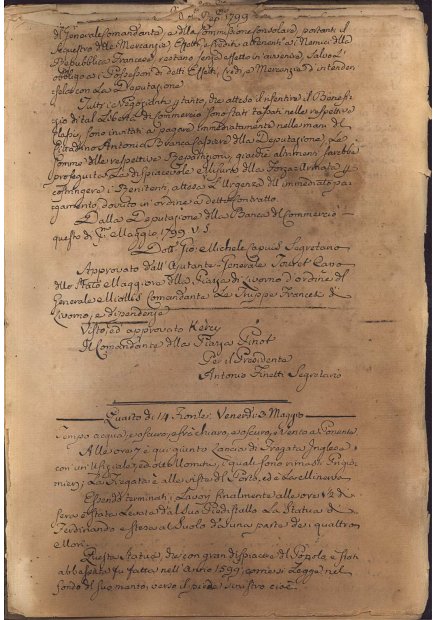 1799
di Generale Comandante, e dalla Commissione Consolare, portanti il
sequestro delle Mercanzie, Effetti, e Crediti attenenti a' Nemici della
Repubblica Francese, restano senza effetto in avvenire, salvo l'
obbligo a i Possessori di detti Effetti, Crediti, e Mercanzie d'intender-
sela con la Deputazione.
Tutti i Negozianti pertanto, che atteso il sentire il Benefi-
zio di tal Libertà di Commercio sono stati tassati nelle respettive
classi, sono invitati a pagare immediatamente nelle mani del
Cittadino Antonio Branca Cassiere della Deputazione, le
somme delle respettive Repartizioni, giacchè altrimenti sarebbe
proseguita la dispiacevole Misura della Forza Armata, a
costringere i Renitenti, attesa l'Urgenza dell'immediato pa-
gamento, dovuto in ordine a detto Contratto.
Dalla Deputazione della Banca di Commercio
questo dì Maggio 1799 V. S.
Dott. Gio: Michele Capua Segretario
Approvato dall'Aiutante Generale Capo
dello Stato Maggiore della Piazza di Livorno d'ordine del
Generale Miollis Comandante le Truppe Francesi di
Livorno, e dipendenze
Visto, ed approvato
Il Comandante della Piazza Pinot
Per il Presidente
Antonio Finetti Segretario
Quarto di 14 Fiorile: Venerdì 3 Maggio
Tempo acqua, e oscuro, e frà chiaro, e oscuro, e Vento a Ponente
Alle ore 7 è qui giunto Lancia di Fregata Inglese
con un Ufiziale, ed otto Uomini, i quali sono rimasti Prigio-
nieri, la Fregata è alle viste di Porto, ed è la Minerva
Essendo terminati i Lavori finalmente alle ore
sera è stata levata dal suo Piedistallo la Statua di
Ferdinando e stesa al suolo da una parte dei quattro
Mori.
Questa Statua, che con gran dispiacere del Popolo è stata
abbassata fu fatta nell'Anno 1599 come si Legge nel
fondo del suo manto, verso il piede sinistro cioè.